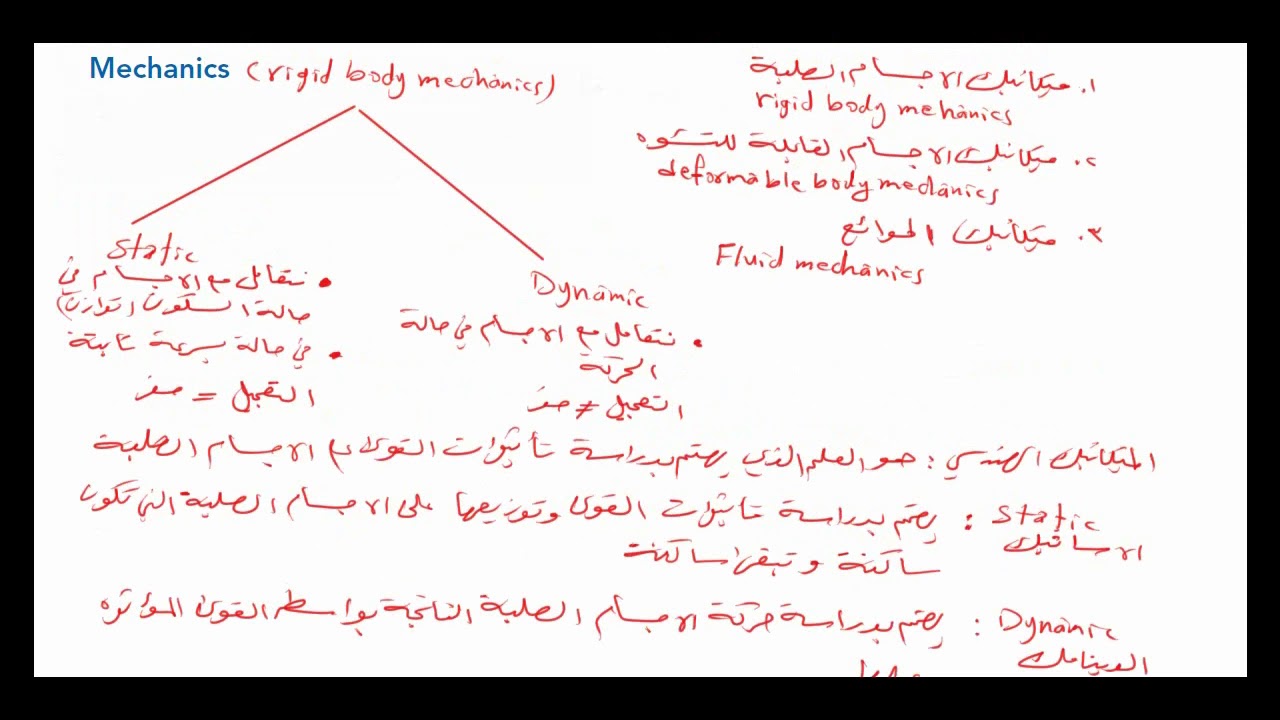 Mechanics (rigid body mechanics)
١. ميكانيك الاجسام الصلبة
rigid body mehanics
٢. ميكانيك الاجسام القابلة للتشوه
deformable body mechanics
٣. ميكانيك الموائع
Fluid mechanics
Static
• نتعامل مع الاجسام في
حالة السكون (توازن)
• في حالة سرعة ثابتة
التعجيل = صفر
Dynamic
• نتعامل مع الاجسام في حالة
الحركة
التعجيل ≠ صفر
الميكانيك الهندسي : هو العلم الذي يهتم بدراسة تأثيرات القوى على الاجسام الصلبة
Static : يهتم بدراسة تأثيرات القوى وتوزيعها على الاجسام الصلبة التي تكون
الاستاتيك
ساكنة وتبقى ساكنة
Dynamic : يهتم بدراسة حركة الاجسام الصلبة الناتجة بواسطة القوى المؤثره
الديناميك